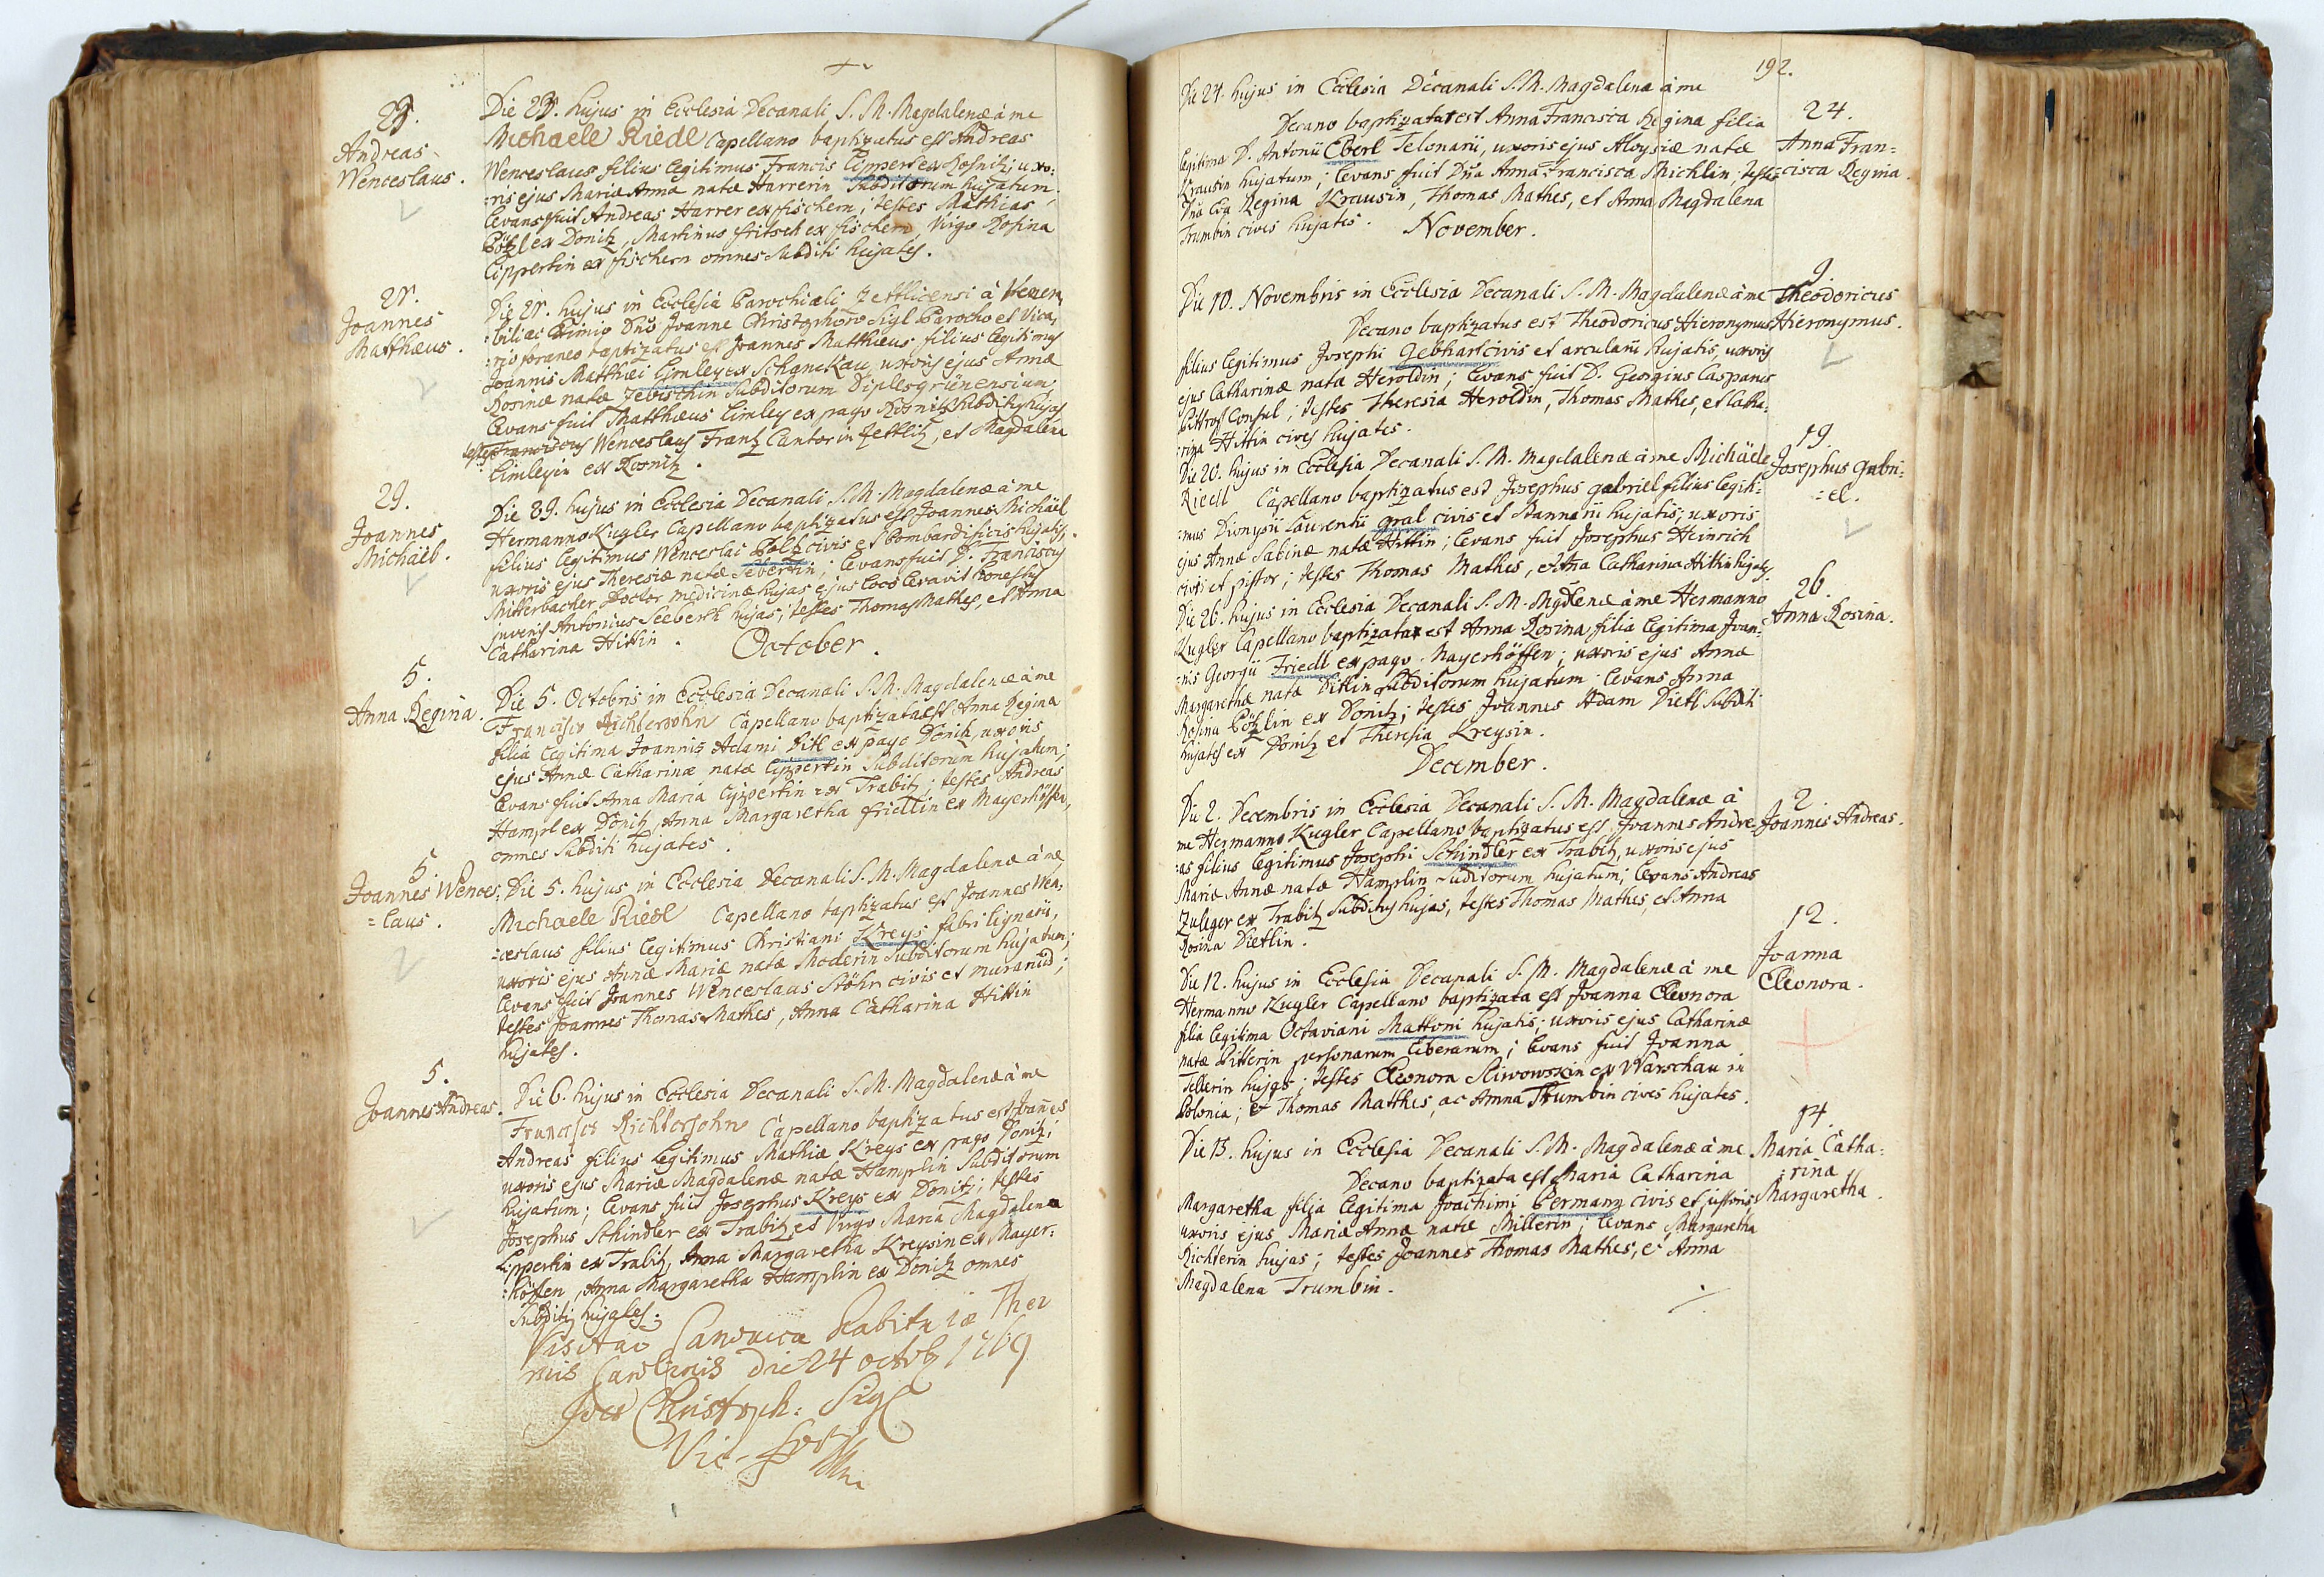 23.
Andreas
Wenceslaus.
Die 23. hujus in Ecclesia Decanali S. M. Magdalenæ à me
Michaele Riedl Capellano baptizatus est Andreas
Wenceslaus filius legitimus Francis Lippert ex Rosnitz; uxo:
:ris ejus Mariæ Annæ natæ Harrerin Subditorum hujatum;
Levans fuit Andreas Harrer ex fischern; testes Mathias
Pötzl ex Donitz, Martinus fritsch ex fischern, Virgo Rosina
Lippertin ex fischern omnes Subditi hujates.
Joannes
Matthæus.
Die hujus in Ecclesia Parochiali Zettlicensi à Vener,
:bili ac Eximio Dno Joanne Christophoro Sigl Parocho et Vica,
:rio foraneo baptizatus est Joannes Matthæus filius legitimus
Joannis Matthæi Limley ex Schanckau, uxoris ejus Annæ
Rosinæ natæ Zebischin Subditorum Diplesgrünensium
Levans fuit Matthæus Limley ex pago Rosnitz Subditus hujas
testes Franciscus Wenceslaus Frantz Cantor in Zettlitz, et Magdalena
Limleyin ex Rosnitz.
29.
Joannes
Michaël.
Die 29. hujus in Ecclesia Decanali S. M. Magdalenæ à me
Hermanno Kugler Capellano baptizatus est Joannes Michäel
filius legitimus Wenceslai Poltz civis et bombardificis hujatis,
uxoris ejus Theresiæ natæ Sebertin; Levans fuit D. Franciscus
Mitterbacher Doctor medicinæ hujas ejus loco levavit honestus
juvenis Antonius Seebert hujas; testes Thomas Mathes, et Anna
Catharina Hittin.
October.
5.
Anna Regina.
Die 5. Octobris in Ecclesia Decanali S. M. Magdalenæ à me
Francisco Richtersohn Capellano baptizata est Anna Regina
filia legitima Joannis Adami Ditl ex pago Donitz, uxoris
ejus Annæ Catharinæ natæ Lippertin Subditorum hujatum;
Levans fuit Anna Maria Lippertin ex Trabitz; testes Andreas
Hampl ex Donitz, Anna Margaretha friedlin ex Mayerhöffen,
omnes Subditi hujates.
5.
Joannes Wences:
=laus.
Die 5. hujus in Ecclesia Decanali S. M. Magdalenæ à me
Michaele Riedl Capellano baptizatus est Joannes Wen,
:ceslaus filius legitimus Christiani Kreys fabri lignarii,
uxoris ejus Annæ Mariæ natæ Moderin Subditorum hujatum;
Levans fuit Joannes Wenceslaus Stöhr civis et murarius;
testes Joannes Thomas Mathes, Anna Catharina Hittin
hujates.
5.
Joannes Andreas.
Die 6. hujus in Ecclesia Decanali S. M. Magdalenæ à me
Francisco Richtersohn Capellano baptizatus est Joannes
Andreas filius legitimus Mathiæ Kreys ex pago Donitz;
uxoris ejus Mariæ Magdalenæ natæ Hamplin Subditorum
hujatum; Levans fuit Josephus Kreys ex Donitz; testes
Josephus Schindler ex Trabitz et Virgo Maria Magdalena
Lippertin ex Trabitz, Anna Margaretha Kreysin ex Mayer:
:höffen, Anna Margaretha Hamplin ex Donitz omnes
Subditi hujates.
Visitatio Canonica habita in Ther
mis Carolinis die 24 octob 1769
Joes Christoph: Sigl
Vic. For
192.
Die 24. hujus in Ecclesia Decanali S. M. Magdalenæ à me
Decano baptizata est Anna Francisca Regina filia
legitima D. Antonii Eberl Telonarii, uxoris ejus Aloysiæ natæ
Krausin hujatum; Levans fuit Dna Anna Francisca Michlin; testes
Dna Eva Regina Krausin, Thomas Mathes, et Anna Magdalena
Trumbin cives hujates.
24.
Anna Fran=
=cisca Regina.
November.
Die 10. Novembris in Ecclesia Decanali S. M. Magdalenæ à me
Decano baptizatus est Theodoricus Hieronymus
filius legitimus Josephi Gebhart civis et arcularii hujatis, uxoris
ejus Catharinæ natæ Heroldin; Levans fuit D. Georgius Casparus
Pittroff Consul; testes Theresia Heroldin, Thomas Mathes, et Catha:
:rina Hittin cives hujates.
9.
Theodoricus
Hieronymus.
Die 20. hujus in Ecclesia Decanali S. M. Magdalenæ à me Michäele
Riedl Capellano baptizatus est Josephus gabriel filius legiti:
:mus Dionysii Laurentii gral civis et Stannarii hujatis; uxoris
ejus Annæ Sabinæ natæ Hittin; Levans fuit Josephus Heinrich
civis et pistor; testes Thomas Mathes, et Anna Catharina Hittin hujates.
19.
Josephus gabri:
:el.
Die 26. hujus in Ecclesia Decanali S. M. Mgdlenæ à me Hermanno
Kugler Capellano baptizata est Anna Rosina filia legitima Joan:
:nis Georgii Friedl ex pago Mayerhöffen; uxoris ejus Annæ
Margarethæ natæ Ditlin Subditorum hujatum Levans Anna
Rosina Pötzlin ex Donitz; testes Joannes Adam Dietl Subdit:
hujates ex Donitz et Theresia Kreysin.
26.
Anna Rosina.
December.
Die 2. Decembris in Ecclesia Decanali S. M. Magdalenæ à
me Hermanno Kugler Capellano baptizatus est Joannes Andre:
:as filius legitimus Josephi Schindler ex Trabitz, uxoris ejus
Mariæ Annæ natæ Hamplin Suditorum hujatum; Levans Andreas
Zuleger ex Trabitz Subditus hujas, testes Thomas Mathes, et Anna
Rosina Dietlin.
2
Joannis Andreas.
Die 12. hujus in Ecclesia Decanali S. M. Magdalenæ à me
Hermanno Kugler Capellano baptizata est Joanna Eleonora
filia legitima Octaviani Mattoni hujatis; uxoris ejus Catharinæ
natæ Pitterin personarum liberarum; Levans fuit Joanna
Tellerin hujas; testes Eleonora Sliwowskin ex Warschau in
Polonia; et Thomas Matthes, ac Anna Trumbin cives hujates.
12.
Joanna
Eleonora.
Die 15. hujus in Ecclesia Decanali S. M. Magdalenæ à me
Decano baptizata est Maria Catharina
Margaretha filia legitima Joachimi Permann civis et
uxoris ejus Mariæ Annæ natæ Millerin; Levans Margaretha
Richterin hujas; testes Joannes Thomas Mathes, et Anna
Magdalena Trumbin.
14.
Maria Catha:
:rina
Margaretha.